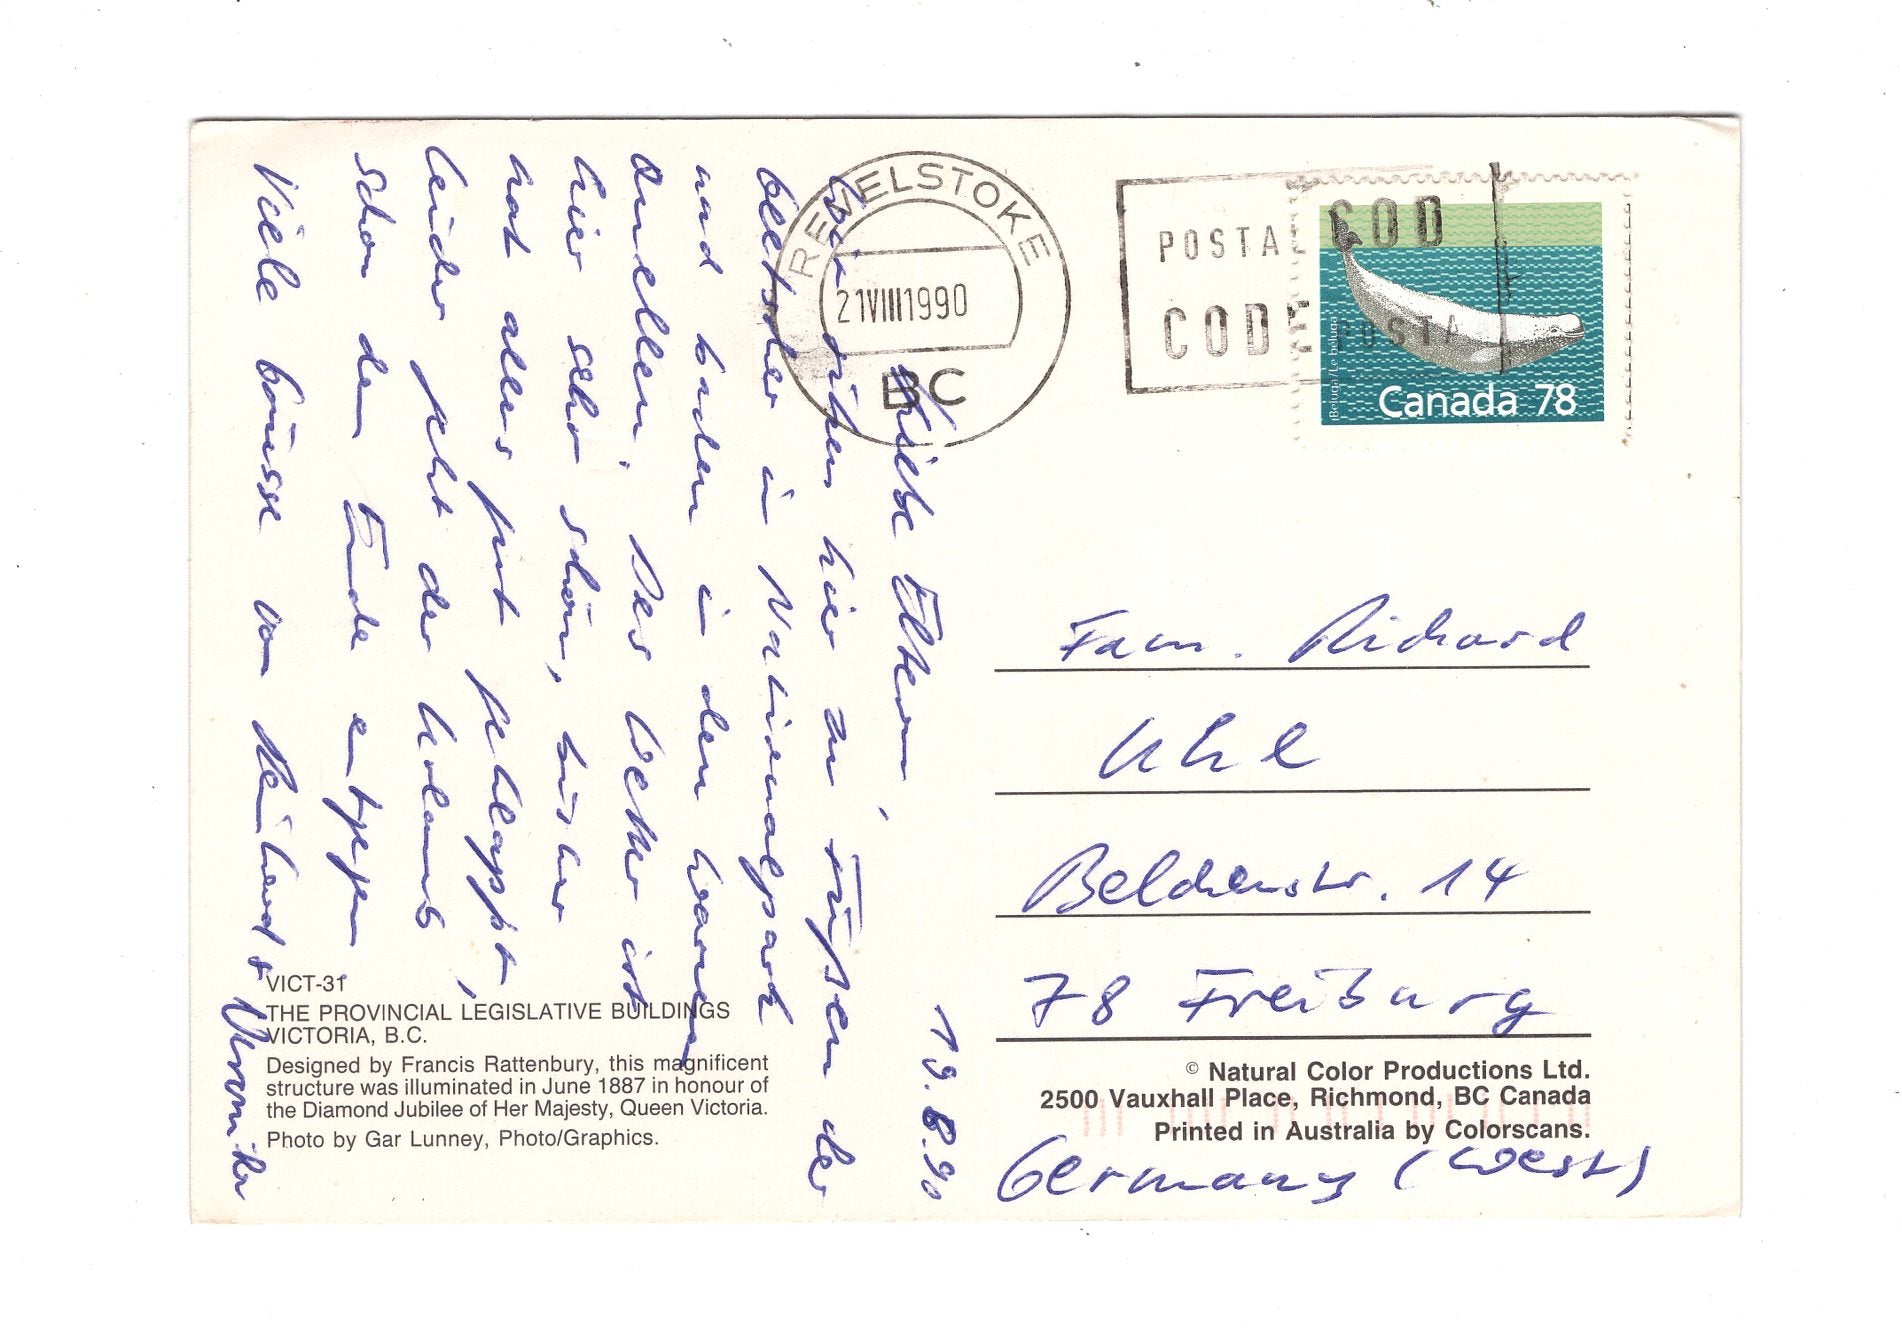 19.8.90
Liebe Eltern,
wir sitzen hier zu Füßen der
Gletscher im Nationalpark
und baden in den warmen
Quellen. Das Wetter ist
hier sehr schön, bisher
hat alles gut geklappt,
leider geht der Urlaub
schon dem Ende entgegen
Viele Grüsse von Reinhard + Veronika
REVELSTOKE
21VIII1990
BC
POSTAL COD
CODE POSTA
Beluga/Le béluga
Canada 78
Fam. Richard
Uhl
Belchenstr. 14
78 Freiburg
Germany (West)
VICT-31
THE PROVINCIAL LEGISLATIVE BUILDINGS
VICTORIA, B.C.
Designed by Francis Rattenbury, this magnificent
structure was illuminated in June 1887 in honour of
the Diamond Jubilee of Her Majesty, Queen Victoria.
Photo by Gar Lunney, Photo/Graphics.
© Natural Color Productions Ltd.
2500 Vauxhall Place, Richmond, BC Canada
Printed in Australia by Colorscans.